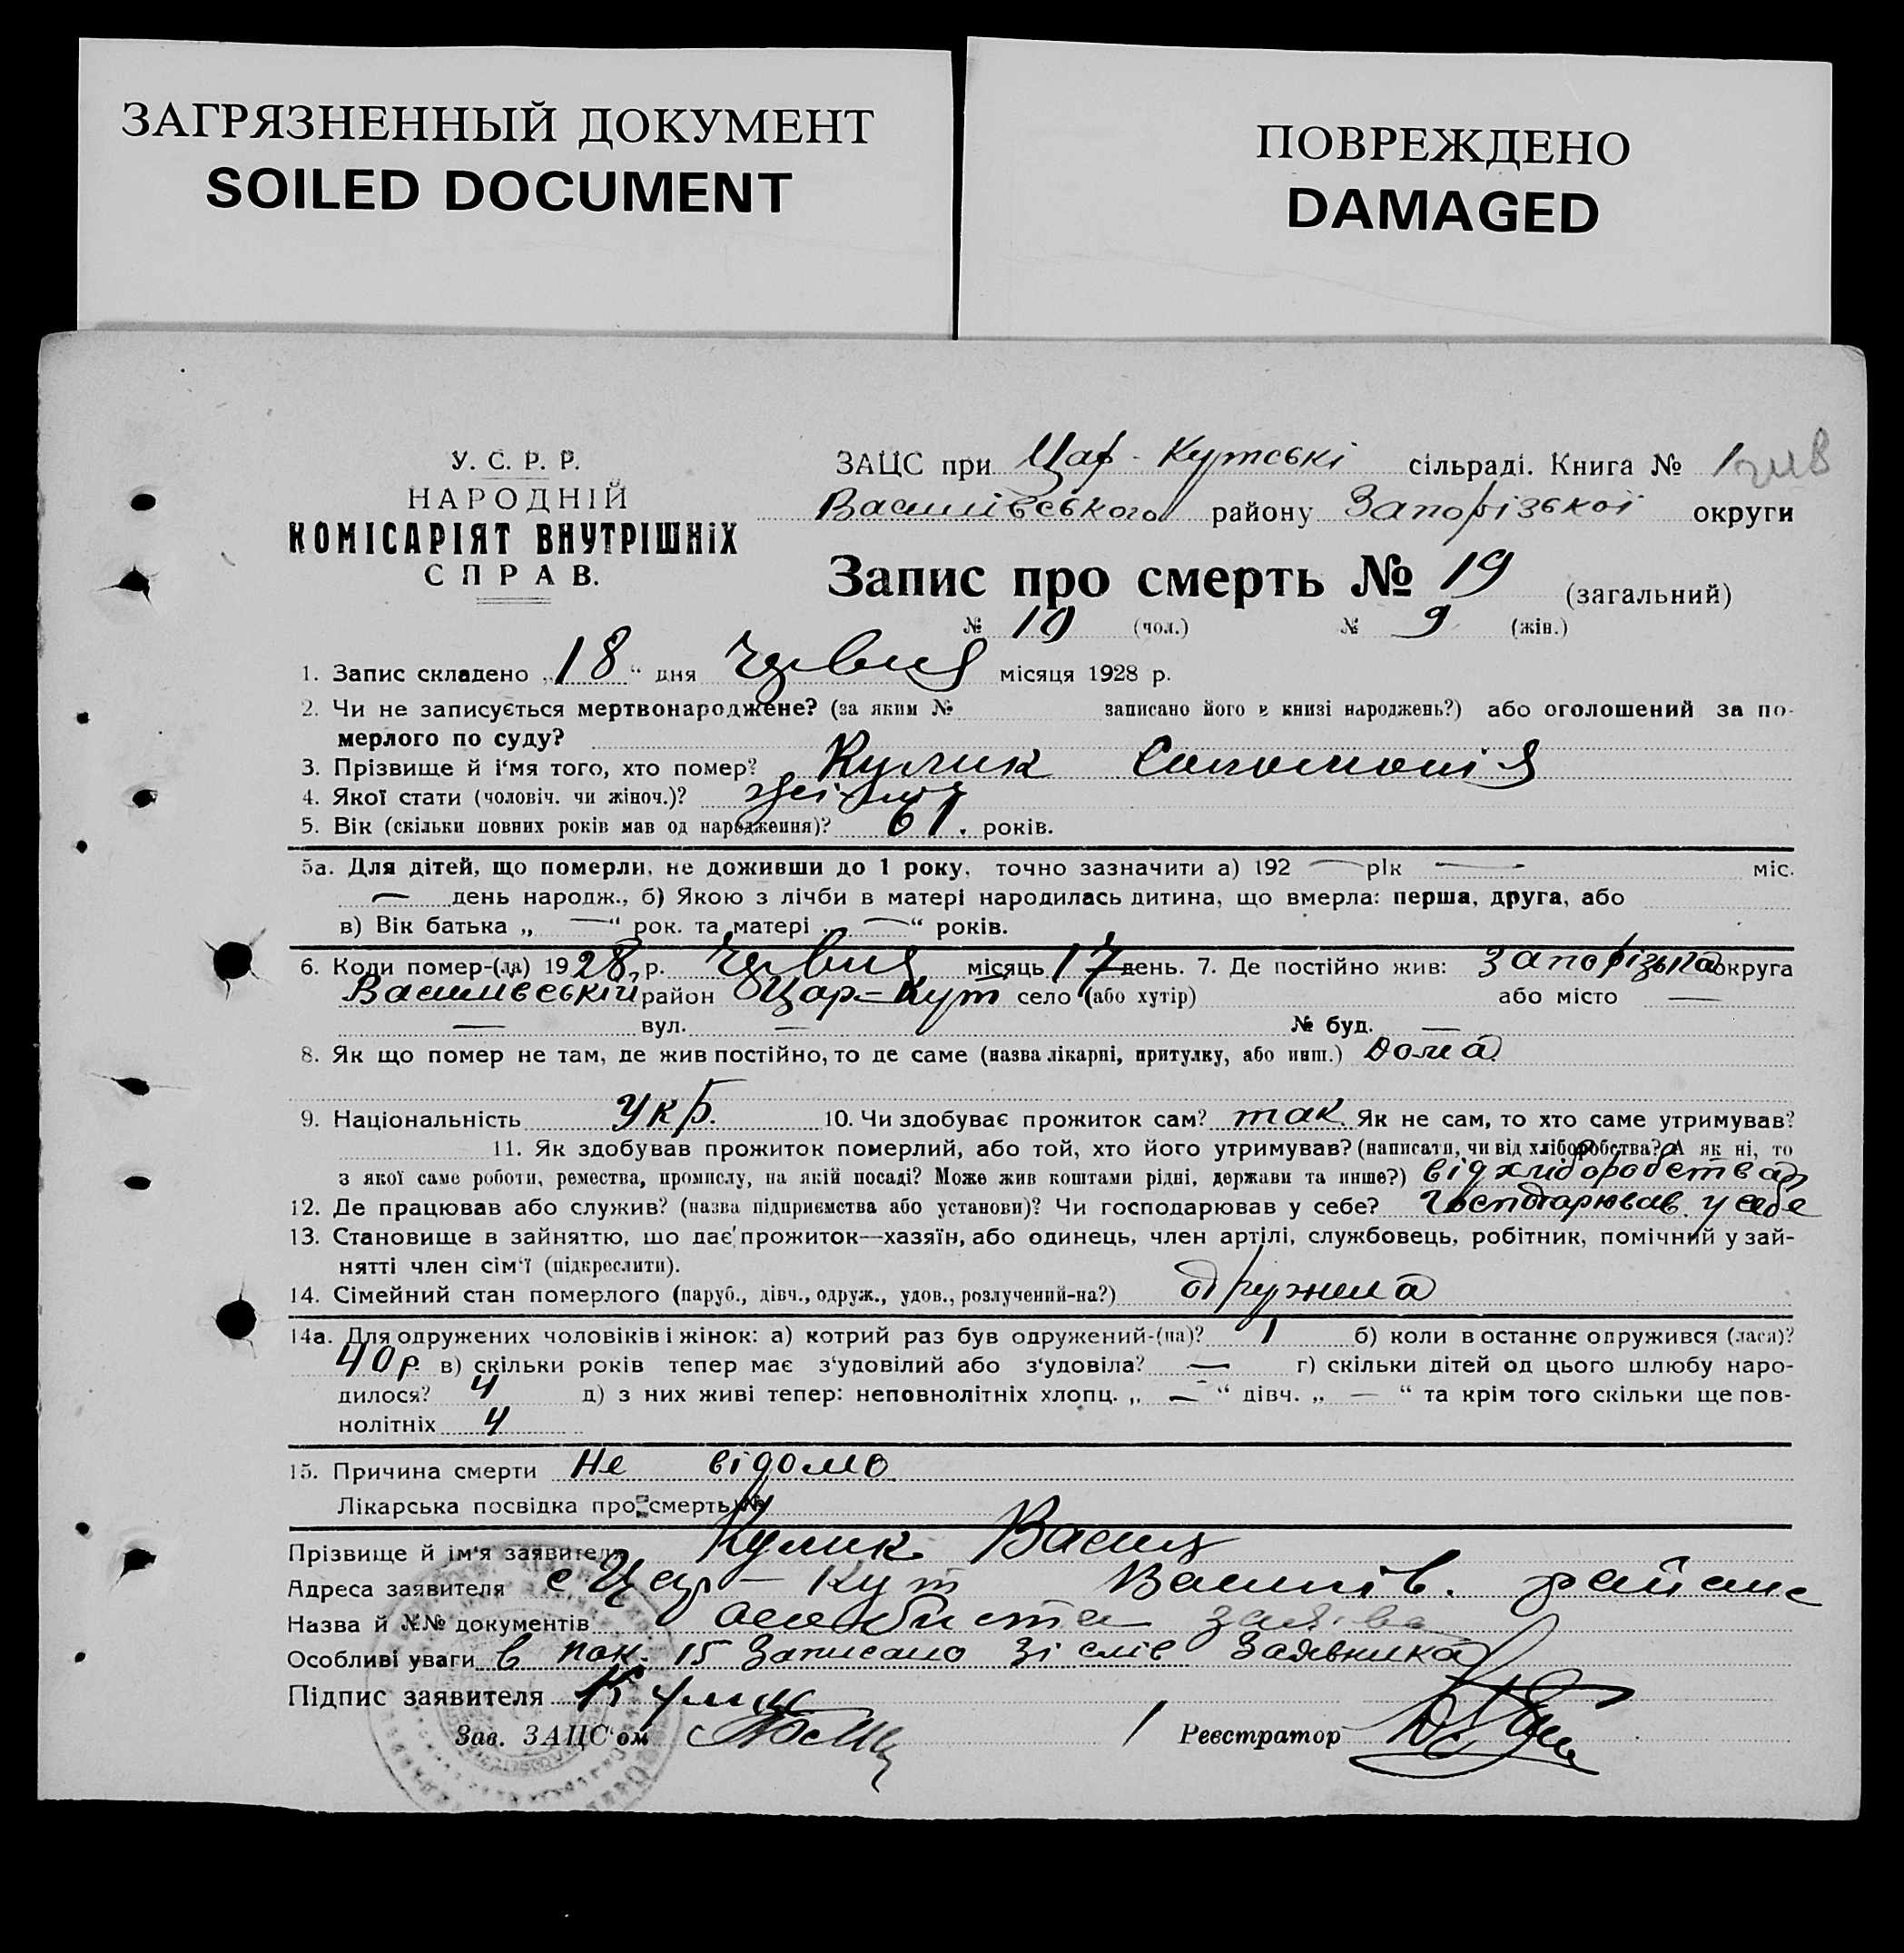 ЗАГРЯЗНЕННЫЙ ДОКУМЕНТ
SOILED DOCUMENT
ПОВРЕЖДЕНО
DAMAGED
У. С. Р. Р.
НАРОДНІЙ
КОМІСАРІЯТ ВНУТРІШНІХ
СПРАВ.
ЗАЦС при Цар-Кутські сільраді. Книга № 1
Василівського району Запорізької округи
Запис про смерть № 19 (загальний)
№ 10 (чол.) № 9 (жін.)
1. Запис складено „18“ дня Червня місяця 1928 р.
2. Чи не записується мертвонароджене? (за яким № записано його в книзі народжень?) або оголошений за по-
мерлого по суду?
3. Прізвище й і‘мя того, хто помер? Кулик Соломонія
4. Якої стати (чоловіч. чи жіноч.)?
5. Вік (скільки повних років мав од народження)? 61. років.
5а. Для дітей, що померли, не доживши до 1 року, точно зазначити а) 192 — рік — міс.
— день народж., б) Якою з лічби в матері народилась дитина, що вмерла: перша, друга, або
в) Вік батька „ —“ рок. та матері „ —“ років.
6. Коли помер-(ла) 1928 р. Червня місяць 17 день. 7. Де постійно жив: Запорізька округа
Василівський район Цар-Кут село (або хутір) або місто —
— вул. — № буд. —
8. Як що помер не там, де жив постійно, то де саме (назва лікарні, притулку, або инш.) Дома
9. Національність Укр. 10. Чи здобуває прожиток сам? так Як не сам, то хто саме утримував?
11. Як здобував прожиток померлий, або той, хто його утримував? (написати, чи від хліборобства? А як ні, то
з якої саме роботи, ремества, промислу, на якій посаді? Може жив коштами рідні, держави та инше?) від хліборобства
12. Де працював або служив? (назва підприємства або установи)? Чи господарював у себе? Господарював у себе
13. Становище в зайняттю, що дає прожиток—хазяїн, або одинець, член артілі, службовець, робітник, помічний у зай-
нятті член сім‘ї (підкреслити).
14. Сімейний стан померлого (паруб., дівч., одруж., удов., розлучений-на?) дружина
14а. Для одружених чоловіків і жінок: а) котрий раз був одружений-(на)? 1 б) коли в останнє одружився (лася)?
40 р. в) скільки років тепер має з‘удовілий або з‘удовіла? — г) скільки дітей од цього шлюбу наро-
дилося? 4 д) з них живі тепер: неповнолітніх хлопц. „ — “ дівч. „ — “ та крім того скільки ще пов-
нолітніх 4
15. Причина смерти Не відомо
Лікарська посвідка про смерть №
Прізвище й ім‘я заявителя Кулик Василь
Адреса заявителя с Цар-Кут Василів. району
Назва й №№ документів особиста заява
Особливі уваги в пок. 15 Записано зі слів Заявника
Підпис заявителя Кулик
Зав. ЗАЦС‘ом
Реєстратор